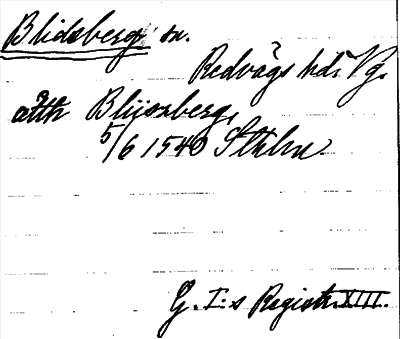 Blidsberg sn.
Redvägs hd. Vg.
Bliisberg,
5/6 1540 Sthlm.
G. I:s Registr. XIII.